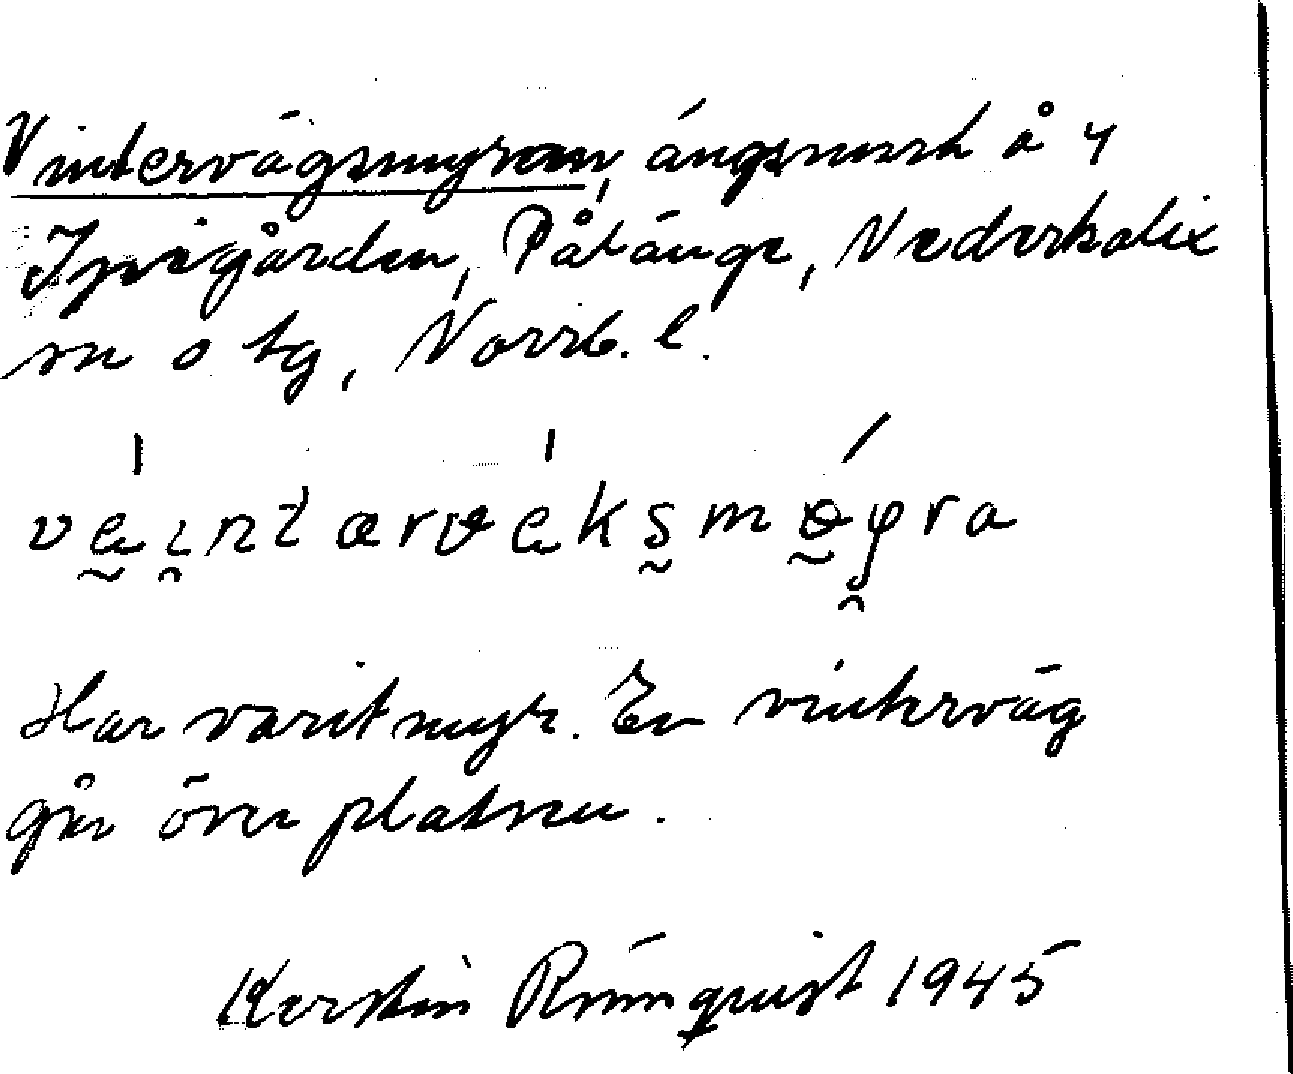 Vintervägsmyran, ängsmark å 4
Ipigården, Pålänge, Nederkalix
sn o tg, Norrb. l.
vę́i̯ntærvę́ksmǿy̯ra
Har varit myr. En vinterväg
går över platsen.
Kerstin Rönnquist 1945